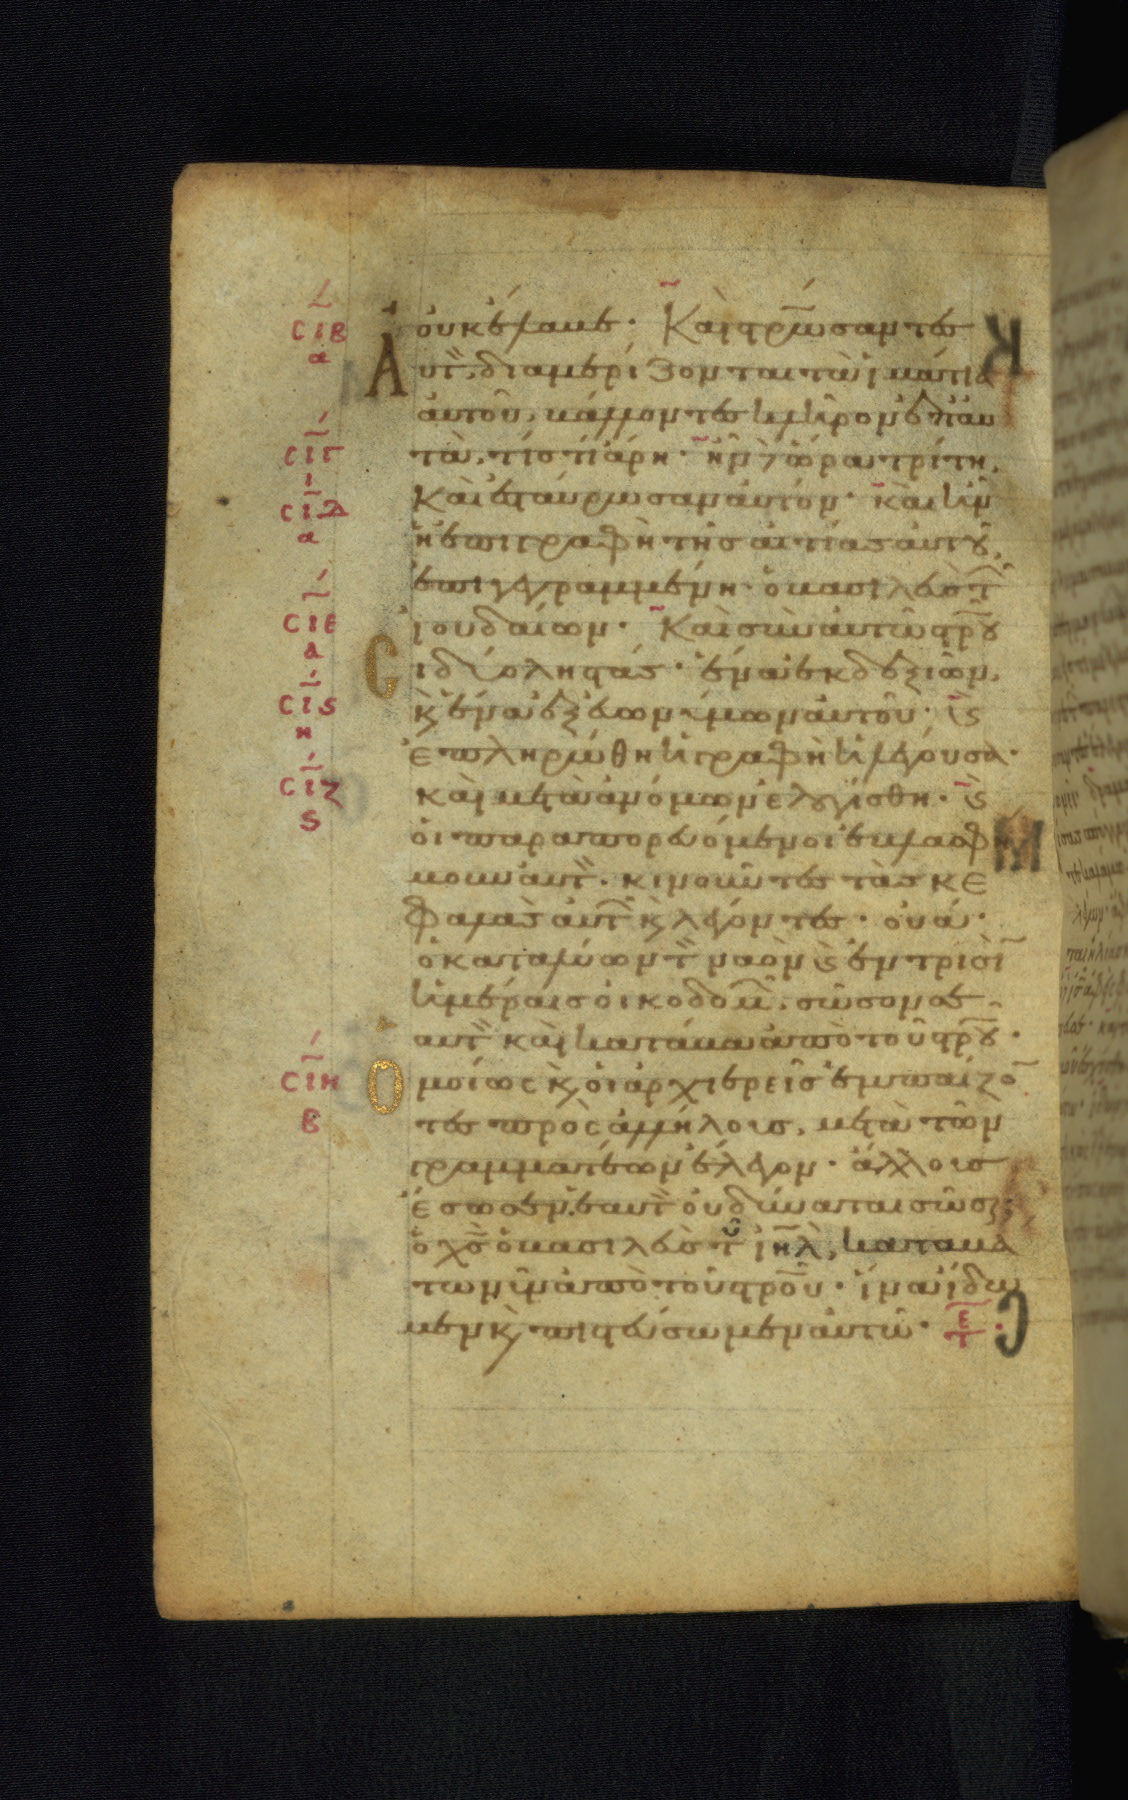 οὐκ ἔλαβε· Καὶ στρω̅σαντες
αυτ̅, διαμερίζονται τὰ ἱμάτια
αὐτοῦ, βάλλοντες κλῆρον ἐπ' αὐ
τὰ, τίς τί ἄρη· ἦν δὲ ὥρα τρίτη,
Καὶ ἐσταύρωσαν αὐτόν· καὶ ἦν
ἡ ἐπιγραφὴ τῆς αἰτίας αὐτοῦ,
ἐπιγεγραμμένη· ὁ βασιλεὺς τ̅
ἰουδαίων· Καὶ σὺν αὐτῶ στρ̅ου
σι δύο ληστάς· ἕνα ἐκ δεξιῶν,
κ̀ ἕνα ἐξ εὐωνύμων αὐτοῦ· κ̀
ἐπληρώθη ἡ γραφὴ ἡ λέγουσα·
καὶ μετὰ ἀνόμων ἐλογίσθη· κ̀
οἱ παραπορευόμενοι ἐβλασφη
μουν αὐτ̅· κινοῦντες τὰς κε
φαλὰς αὐτ̅ κ̀ λέγοντες· οὐά·
ὁ καταλύων τ̅ ναὸν κ̀ ἐν τρισὶ
ἡμέραις οἰκοδομ̅, σῶσον σε
αυτ̅ καὶ κατάβα ἀπὸ τοῦ στρ̅ου·
Ὁμοίως κ̀ οἱ ἀρχιερεῖς ἐμπαίζο̅
τες πρὸς ἀλλήλους, μετὰ τῶν
γραμματέων ἔλεγον· ἄλλους
ἔσωσεν, ἑαυτ̅ οὐ δύναται σῶσαι·
ὁ χ̅ς ὁ βασιλεὺς τοῦ ι̅η̅λ̅, καταβά
τω νῦν ἀπὸ τοῦ στρ̅ου· ἵνα ἴδω
μεν κ̀ πιστεύσωμεν αὐτῶ· τ̅ε̅
σιβ
α
σιγ
σιδ
α
σιε
α
σις
η
σιζ
ς
σιη
β